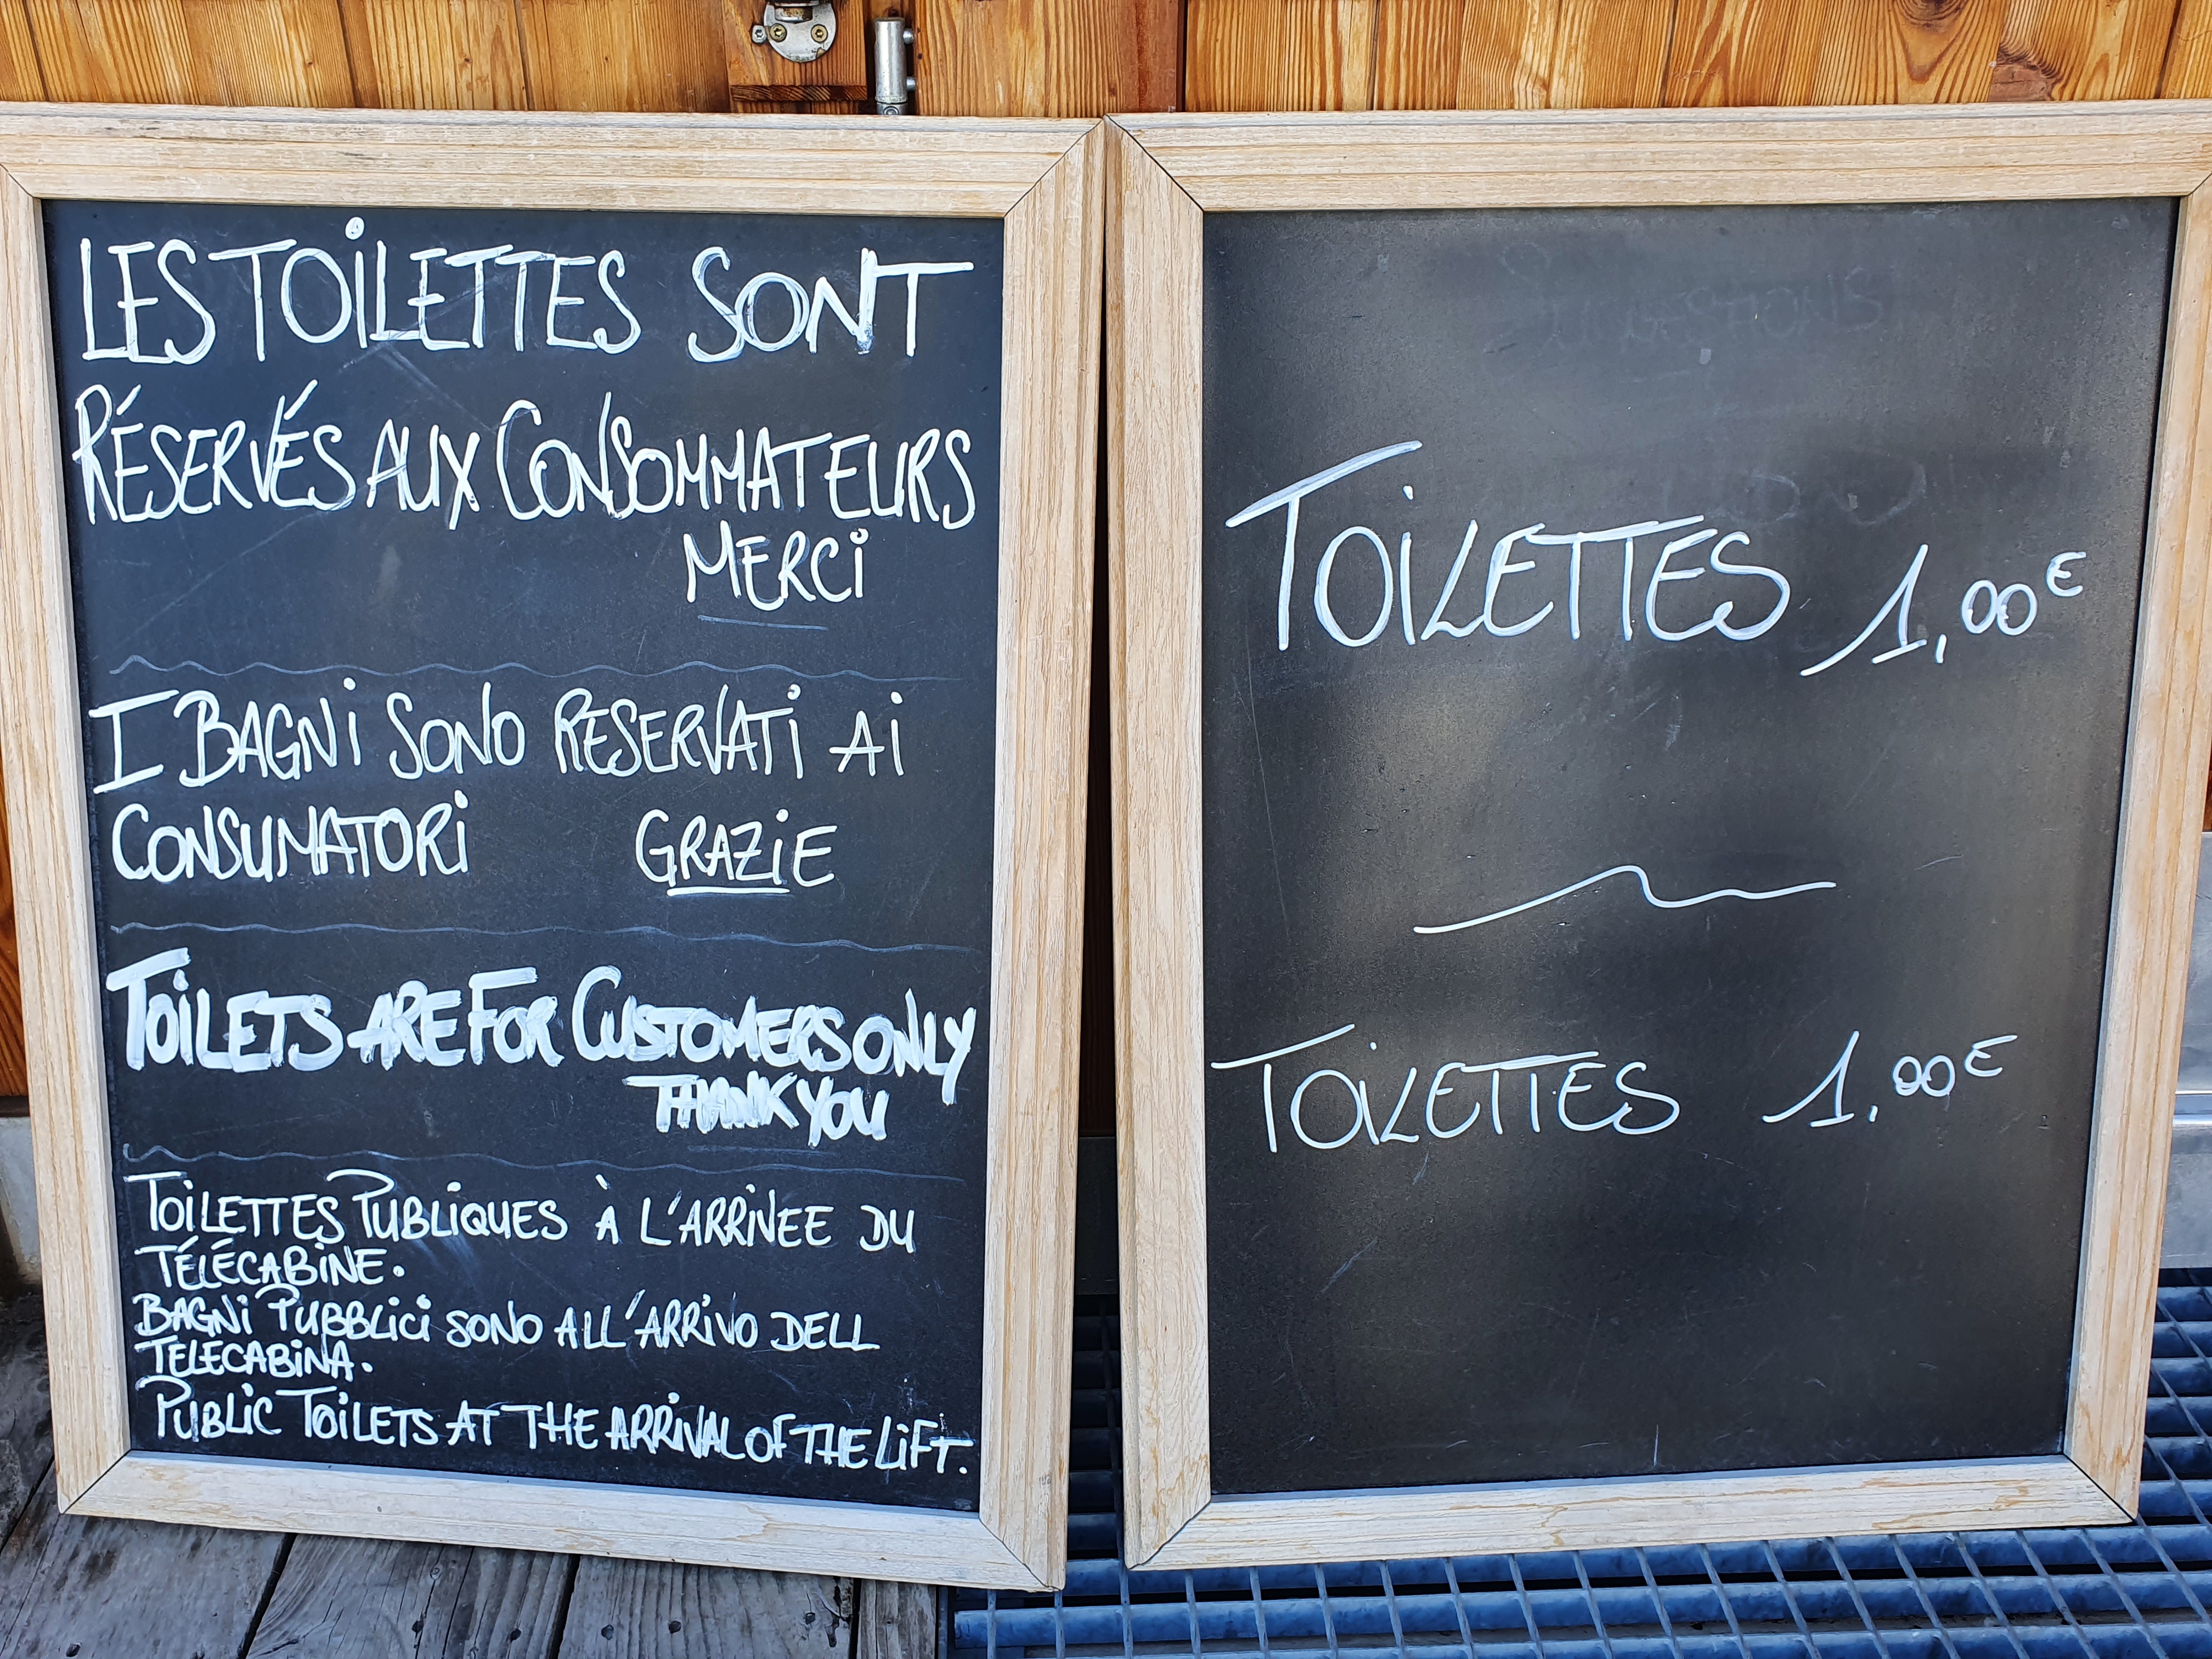 LES TOILETTES SONT
RÉSERVÉS AUX CONSOMMATEURS
MERCI
I BAGNI SONO RESERVATI AI
CONSUMATORI GRAZIE
TOILETS ARE FOR CUSTOMERS ONLY
THANK YOU
TOILETTES PUBLIQUES À L'ARRIVEE DU
TÉLÉCABINE.
BAGNI PUBBLICI SONO ALL'ARRIVO DELL
TELECABINA.
PUBLIC TOILETS AT THE ARRIVAL OF THE LIFT.
SUGGESTIONS
TOILETTES 1,00€
TOILETTES 1,00€